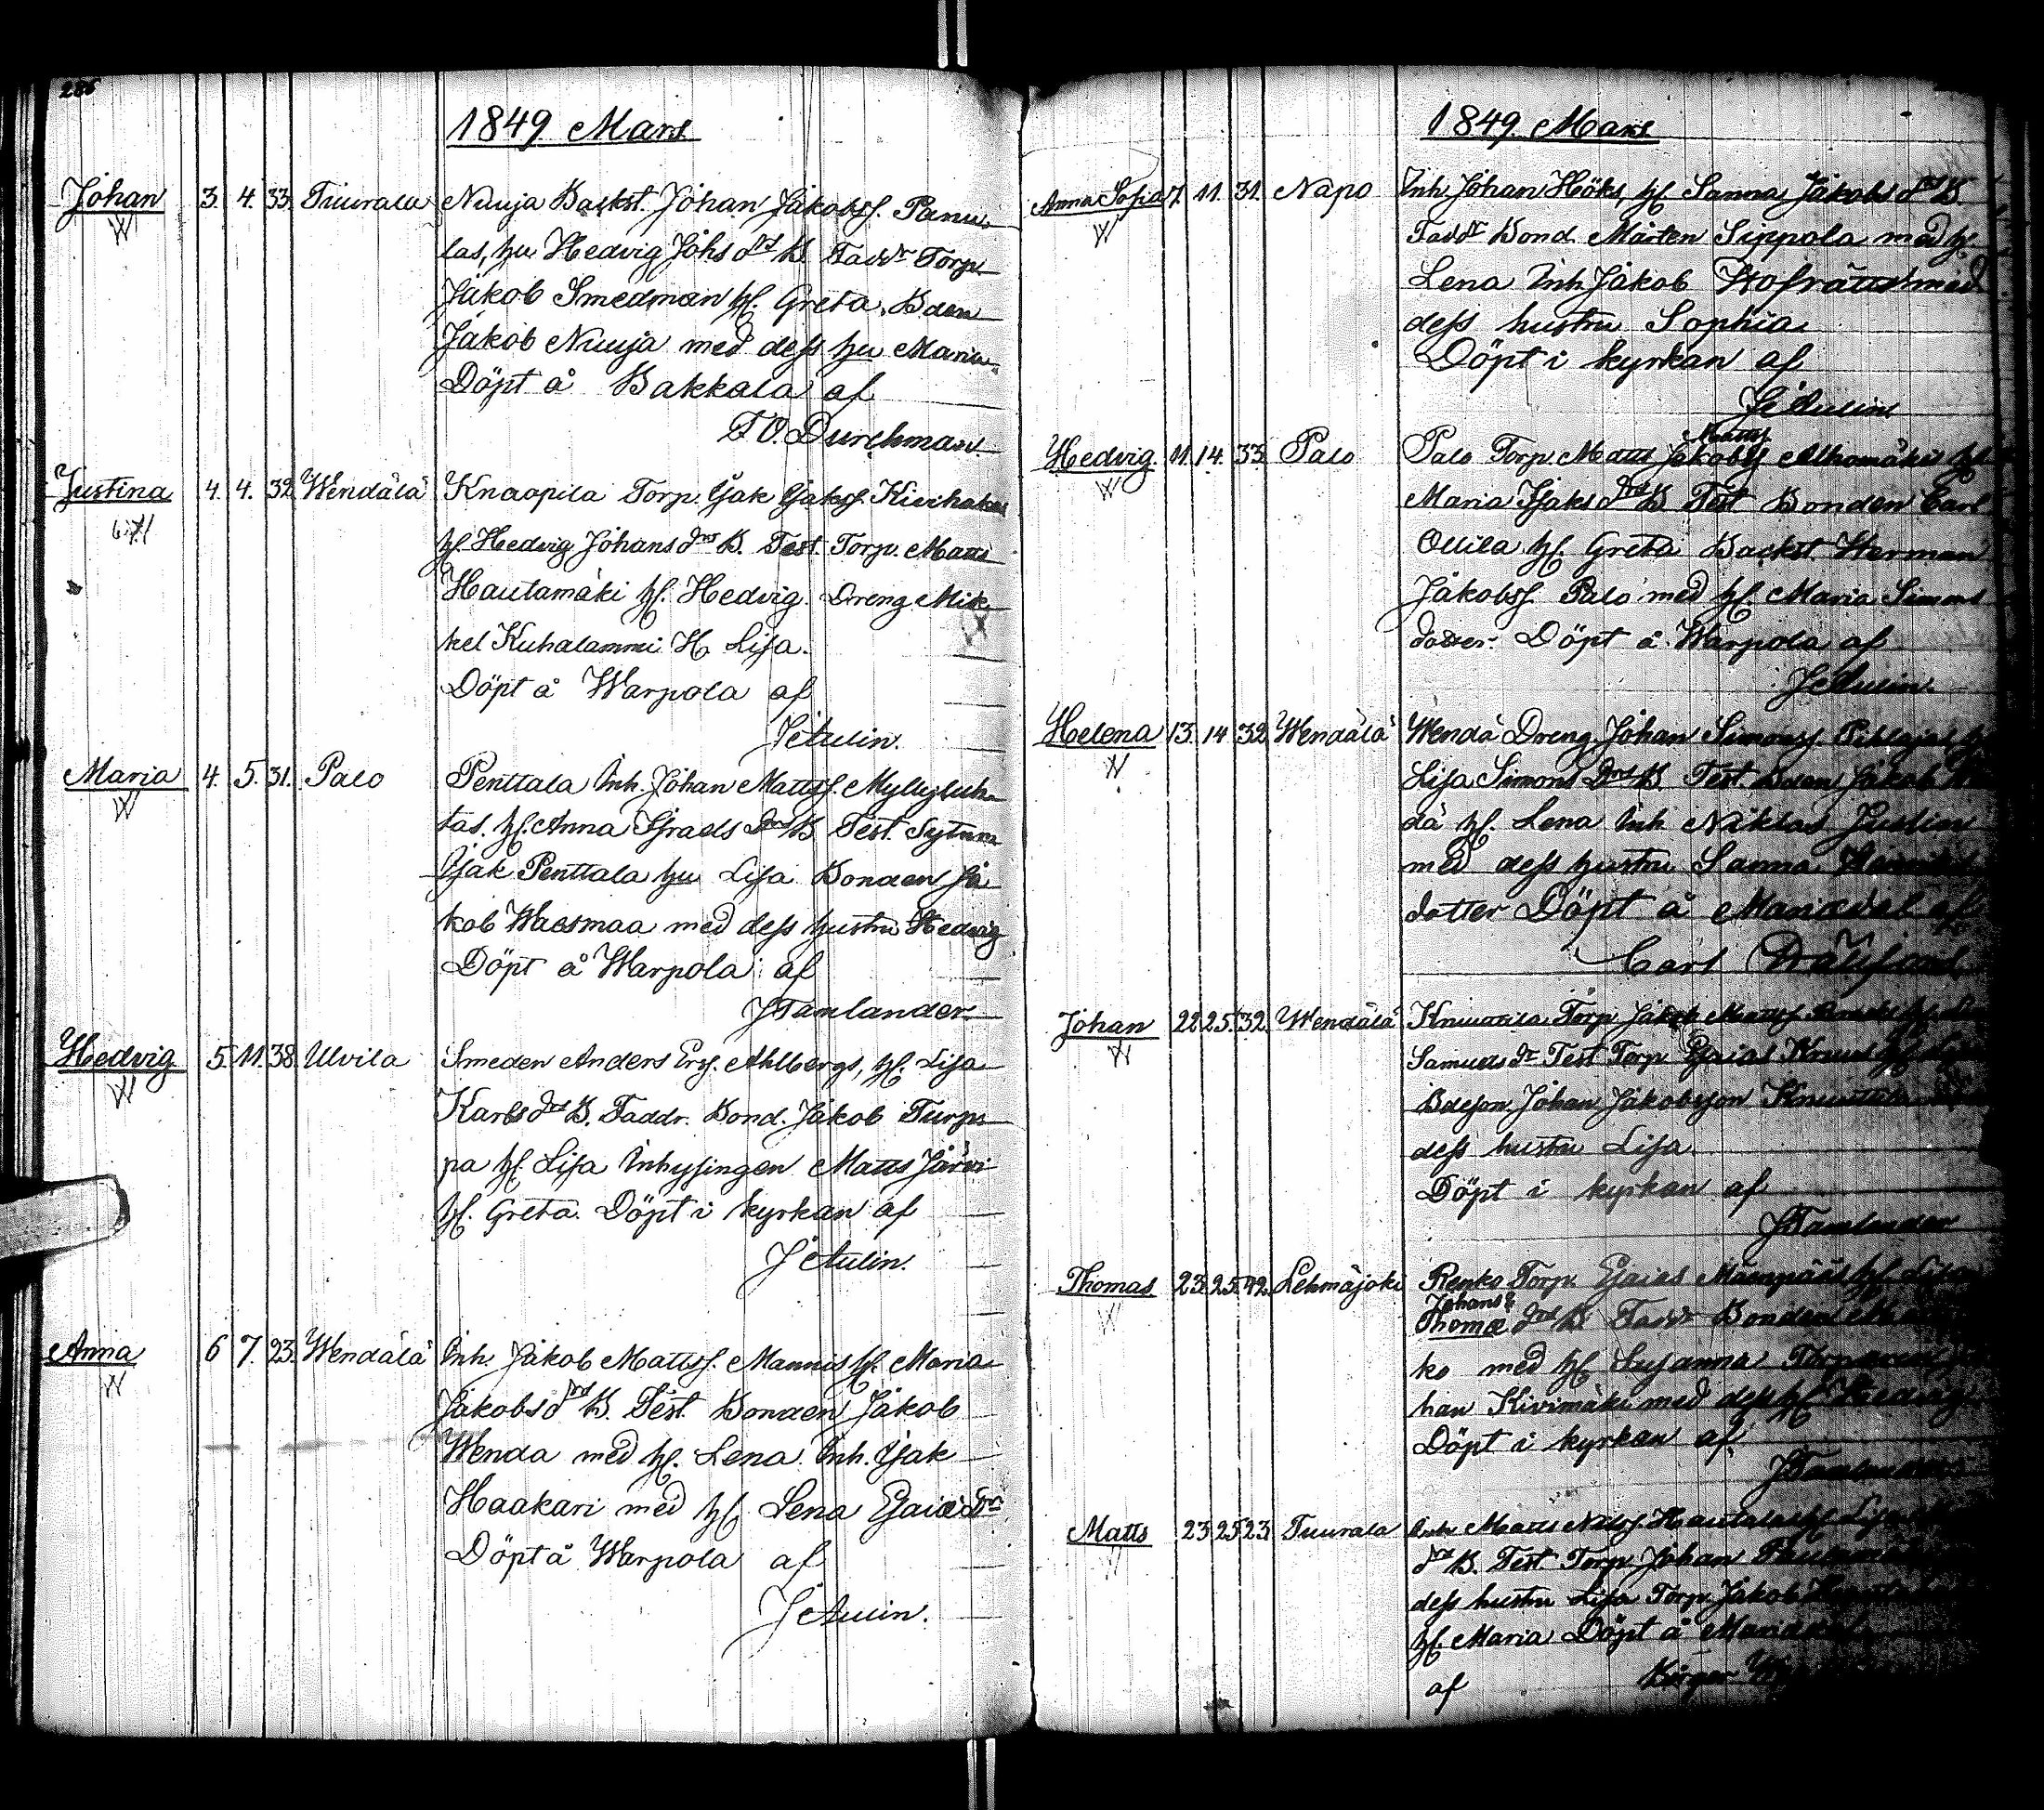 286
1849 Mars
Johan 3. 4. 33. Tuurala Nuuja Backst. Johan Jakobss. Panu-
W las, hu Hedvig Johs drs B. Faddr Torp
Jakob Smedman hf. Greta, Bden
Jakob Nuuja med dess hu Maria
Döpt å Bakkala af
F O. Durchman
Justina 4. 4. 32. Wendälä Knaapila Torp. Isak Isakss. Kivihakas
hf Hedvig Johans drs B. Test. Torp. Matts
Hautamäki hf. Hedvig. Dreng Mik-
kel Kuhalammi H Lisa.
Döpt å Warpola af
J Aulin.
Maria 4. 5. 31. Palo Penttala Inh. Johan Mattss. Myllyluh-
W tas. hf. Anna Israels Drs B Test. Sytnm
Isak Penttala hu Lisa Bonden Ja-
kob Wassmaa med dess hustru Hedvig
Döpt å Warpola af
J Tamlander
Hedvig 5. 11. 38. Ulvila Smeden Anders Ers. Ahlbergs, hf. Lisa
W Karls drs B. Faddr. Bond. Jakob Turp-
pa hf. Lisa Inhysingen Matts Järvi
hf. Greta. Döpt i kyrkan af
J Aulin.
Anna 6 7. 23. Wendälä Inh. Jakob Mattss. Mannis hf. Maria
W Jakobs drs B. Test. Bonden Jakob
Wenda med hf. Lena. Inh. Isak
Haakari med hf Lena Esaiæ Dr
Döpt å Warpola af
J Aulin.
1849 Mars
Anna Sofia 7. 11. 31. Napo Inh Johan Höks, hf. Sanna Jakobs drs B.
W Faddr Bond. Mårten Sippola med hf.
Lena Inh Jakob Hofrätts med
dess hustru Sophia
Döpt i kyrkan af
J Aulin
Hedvig. 11. 14. 33. Palo Palo Torp Matts Jakobs Mattss Alhomäki hf
W Maria Isaks drs B Test Bonden Carl
Ollila hf. Greta Backst Herman
Jakobss. Palo med hf. Maria Simons
dotter. Döpt å Warpola af
J Aulin.
Helena 13. 14 32. Wendälä Wendä Dreng Johan Simonss. Pihlajas
W Lisa Simons Drs B Test. Bden Jakob
dä hf. Lena Inh Niklas
med dess hustru Sanna
dotter Döpt å Mariedal af
Carl
Johan 22 25. 32. Wendälä Knuuttila Torp Jakob Mattss
W Samuels dr Test Torp Esaias
Bdeson Johan Jakobsson Knuuttila
dess hustru Lisa
Döpt i kyrkan af
J Tamlander
Thomas 23. 25. 42. Lehmäjoki Renko Torp. Esaias Mäenpääs hf. Lisa
W Johans & Thomæ drs B Faddr Bonden
ko med hf Susanna Torparen
han Kivimäki med dess hf Hedvig
Döpt i kyrkan af
J Tamlander
Matts 23 25 23 Tuurala Inh Matts Nilss. Hautalas hf Lisa
W drs B. Test. Torp. Johan
dess hustru Lisa Torp. Jakob
hf. Maria Döpt å Mariedal
af